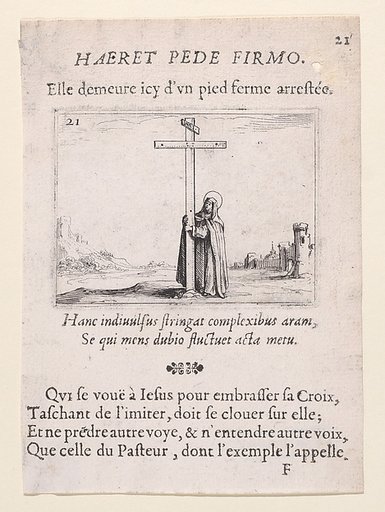 21
HAERET PEDE FIRMO.
Elle demeure icy d'vn pied ferme arreſtée.
21
Hanc indiuulſus ſtringat complexibus aram,
Se qui mens dubio fluctuet acta metu.
Qvi ſe vouë à Ieſus pour embraſſer ſa Croix,
Taſchant de l'imiter, doit ſe clouer ſur elle;
Et ne prẽdre autre voye, & n'entendre autre voix,
Que celle du Paſteur, dont l'exemple l'appelle.
F